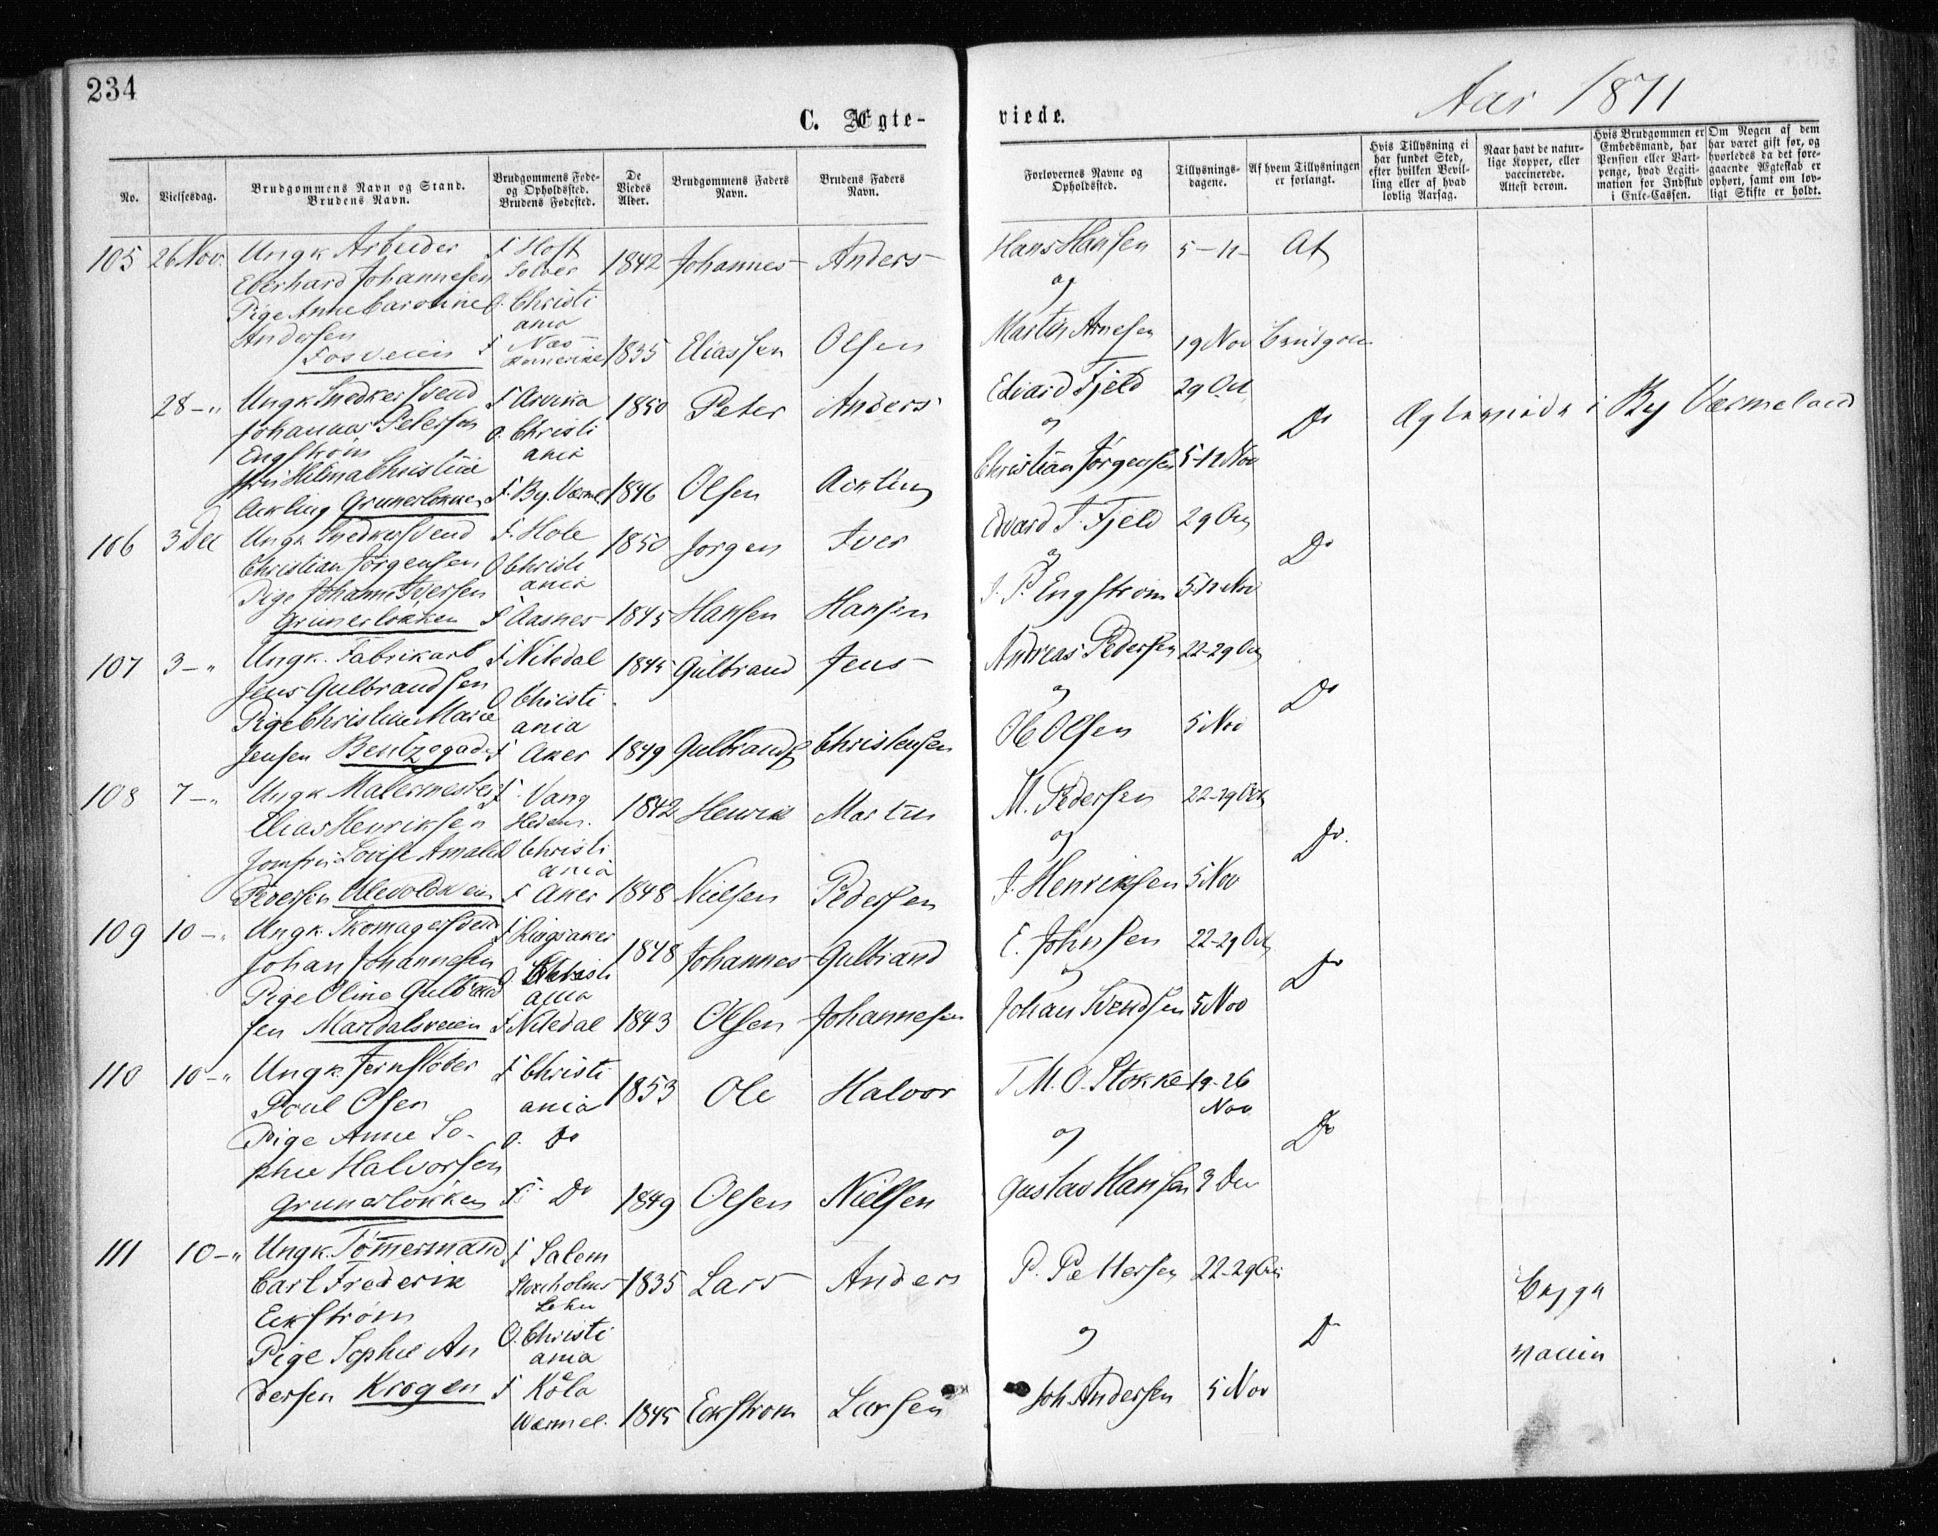 234
C. Ægte-
viede.
Aar 1871
No.
Vielsesdag.
Brudgommens Navn og Stand.
Brudens Navn.
Brudgommens Føde- og Opholdssted.
Brudens Fødested.
De Viedes Alder.
Brudgommens Faders Navn.
Brudens Faders Navn.
Forlovernes Navne og Opholdssted.
Tillysnings-dagene.
Af hvem Tillysningen er forlangt.
Hvis Tillysning ei har fundet Sted, efter hvilken Bevilling eller af hvad lovlig Aarsag.
Naar havt de naturlige Kopper, eller vaccinerede. Attest derom.
Hvis Brudgommen er Embedsmand, har Pension eller Vartpenge, hvad Legitimation for Indskud i Enke-Cassen.
Om Nogen af dem har været gift før, og hvorledes da det foregaaende Ægteskab er ophørt, samt om lovligt Skifte er holdt.
105 26 Nov. Ungk Arbeider F Hoff 1842 Johannes Anders Hans Hansen 5-12 Af
Eberhard Johannesen Solver og
Pige Anne Caroline O. Christi
Andersen ania Martin Arnesen 19 Nov
Fosveien F Næs Romerike 1835 Eliassen Olsen
28 - " Ungk Snedkersvend F Arvika 1850 Peter Anders Edvard Fjeld 29 Oct Do By Værmeland
Johannes Peterson O. Christi og
Engstrøm ania
Hilma Christine Christian Jørgensen 5-12 Nov
Ackling Grunerløkken F. By. Værmel 1846 Olsen Ackling
106 3 Dec Ungk Snedkersvend F. Hole 1850 Jørgen Iver Edvard T. Fjeld 29 Oct Do
Christian Jørgensen O Christi og
Pige Johanne Iversen ania J. P. Engstrøm 5-12 Nov
Grunerløkken F Aasnes 1845 Hansen Hansen
107 3 - " Ungk. Fabrikarb F Nitedal 1845 Gulbrand Jens Andreas Pedersen 22-29 Oct Do
Jens Gulbrandsen O Christi og
Pige Christine Marie ania Ole Olsen 5 Nov
Jensen Bentzegaden F Aker 1849 Gulbrands Christensen
108 7 - " Ungk Malermester F. Vang 1842 Henrik Martin M. Pedersen 22-29 Oct Do.
Elias Henriksen Hedem. og
Jomfru Lovise Amalie Christi
ania
Pedersen Ulevoldsveien F Aker 1848 Nielsen Pedersen J. Henriksen 5 Nov
109 10 - " Ungk Skomagersvend F Ringsaker 1848 Johannes Gulbrand E. Johnsen 22-29 Oct Do
Johan Johannesen O Christi og
Pige Oline Gulbrand ania
sen Maridalsveien F Nitedal 1843 Olsen Johannesen Johan Svendsen 5 Nov
110 10 - " Ungk. Jernstøber F Christi 1853 Ole Halvor T. M. O. Stokke 19-26 Nov Do
Poul Olsen ania
Pige Anne So- O. Do og
phie Halvorsen
Grunerløkken F. Do 1849 Olsen Nielsen Gustav Hansen 3 Dec
111 10 - " Ungk. Tømermand F Salem 1835 Lars Anders P. Pettersen 22-29 Oct Do
Carl Frederik Stockholms
Eckstrøm Lehn
Pige Sophie An O. Christi og
ania vaccin
dersen Krogen F Köla Joh. Andersen 5 Nov
Wermel. 1845 Eckstrom Larsen